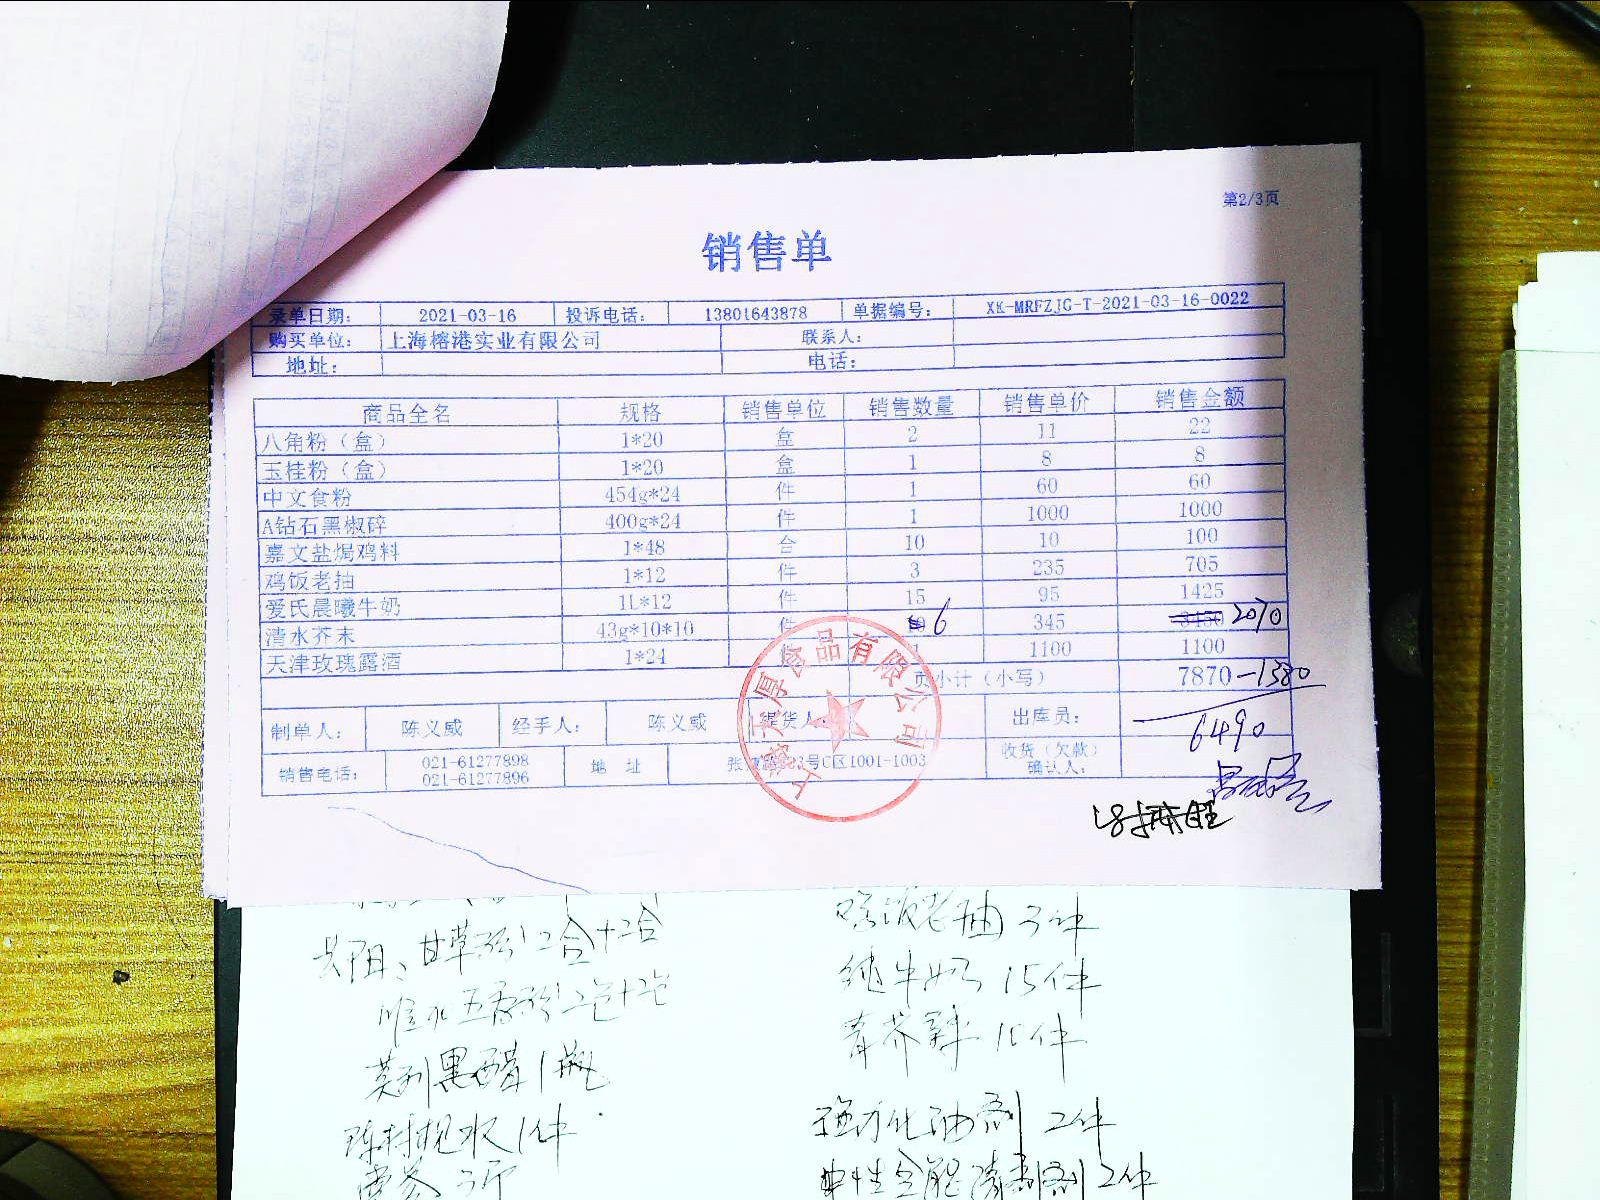 第2/3页
销售单
录单日期： 2021-03-16 投诉电话： 13801643878 单据编号： XK-MRFZJG-T-2021-03-16-0022
购买单位： 上海榕港实业有限公司 联系人：
地址： 电话：
商品全名 规格 销售单位 销售数量 销售单价 销售金额
八角粉（盒） 1*20 盒 2 11 22
玉桂粉（盒） 1*20 盒 1 8 8
中文食粉 454g*24 件 1 60 60
A钻石黑椒碎 400g*24 件 1 1000 1000
嘉文盐焗鸡料 1*48 合 10 10 100
鸡饭老抽 1*12 件 3 235 705
爱氏晨曦牛奶 1L*12 件 15 95 1425
清水芥末 43g*10*10 件 6 345 3450 2070
天津玫瑰露酒 1*24 1 1100 1100
页小计（小写） 7870-1380
6490
制单人： 陈义威 经手人： 陈义威 提货人： 出库员：
销售电话： 021-61277898 021-61277896 地 址 号C区1001-1003 收货（欠款）确认人：
厚食品有限公司
甘草粉2合+2合 鸡饭老抽 3件
五香粉2包+2包 纯牛奶 15件
黑醋1瓶 青芥辣 10件
陈村枧水1件 强力化油剂 2件
2件